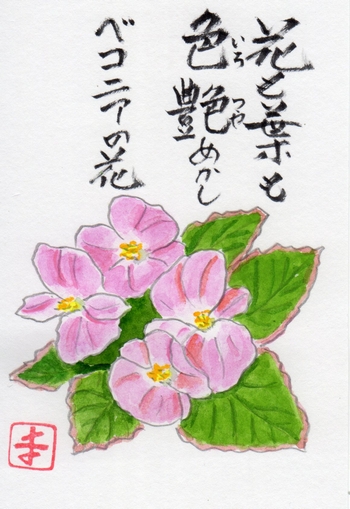 花も葉も
色艶めかし
いろ つや
ベコニアの花